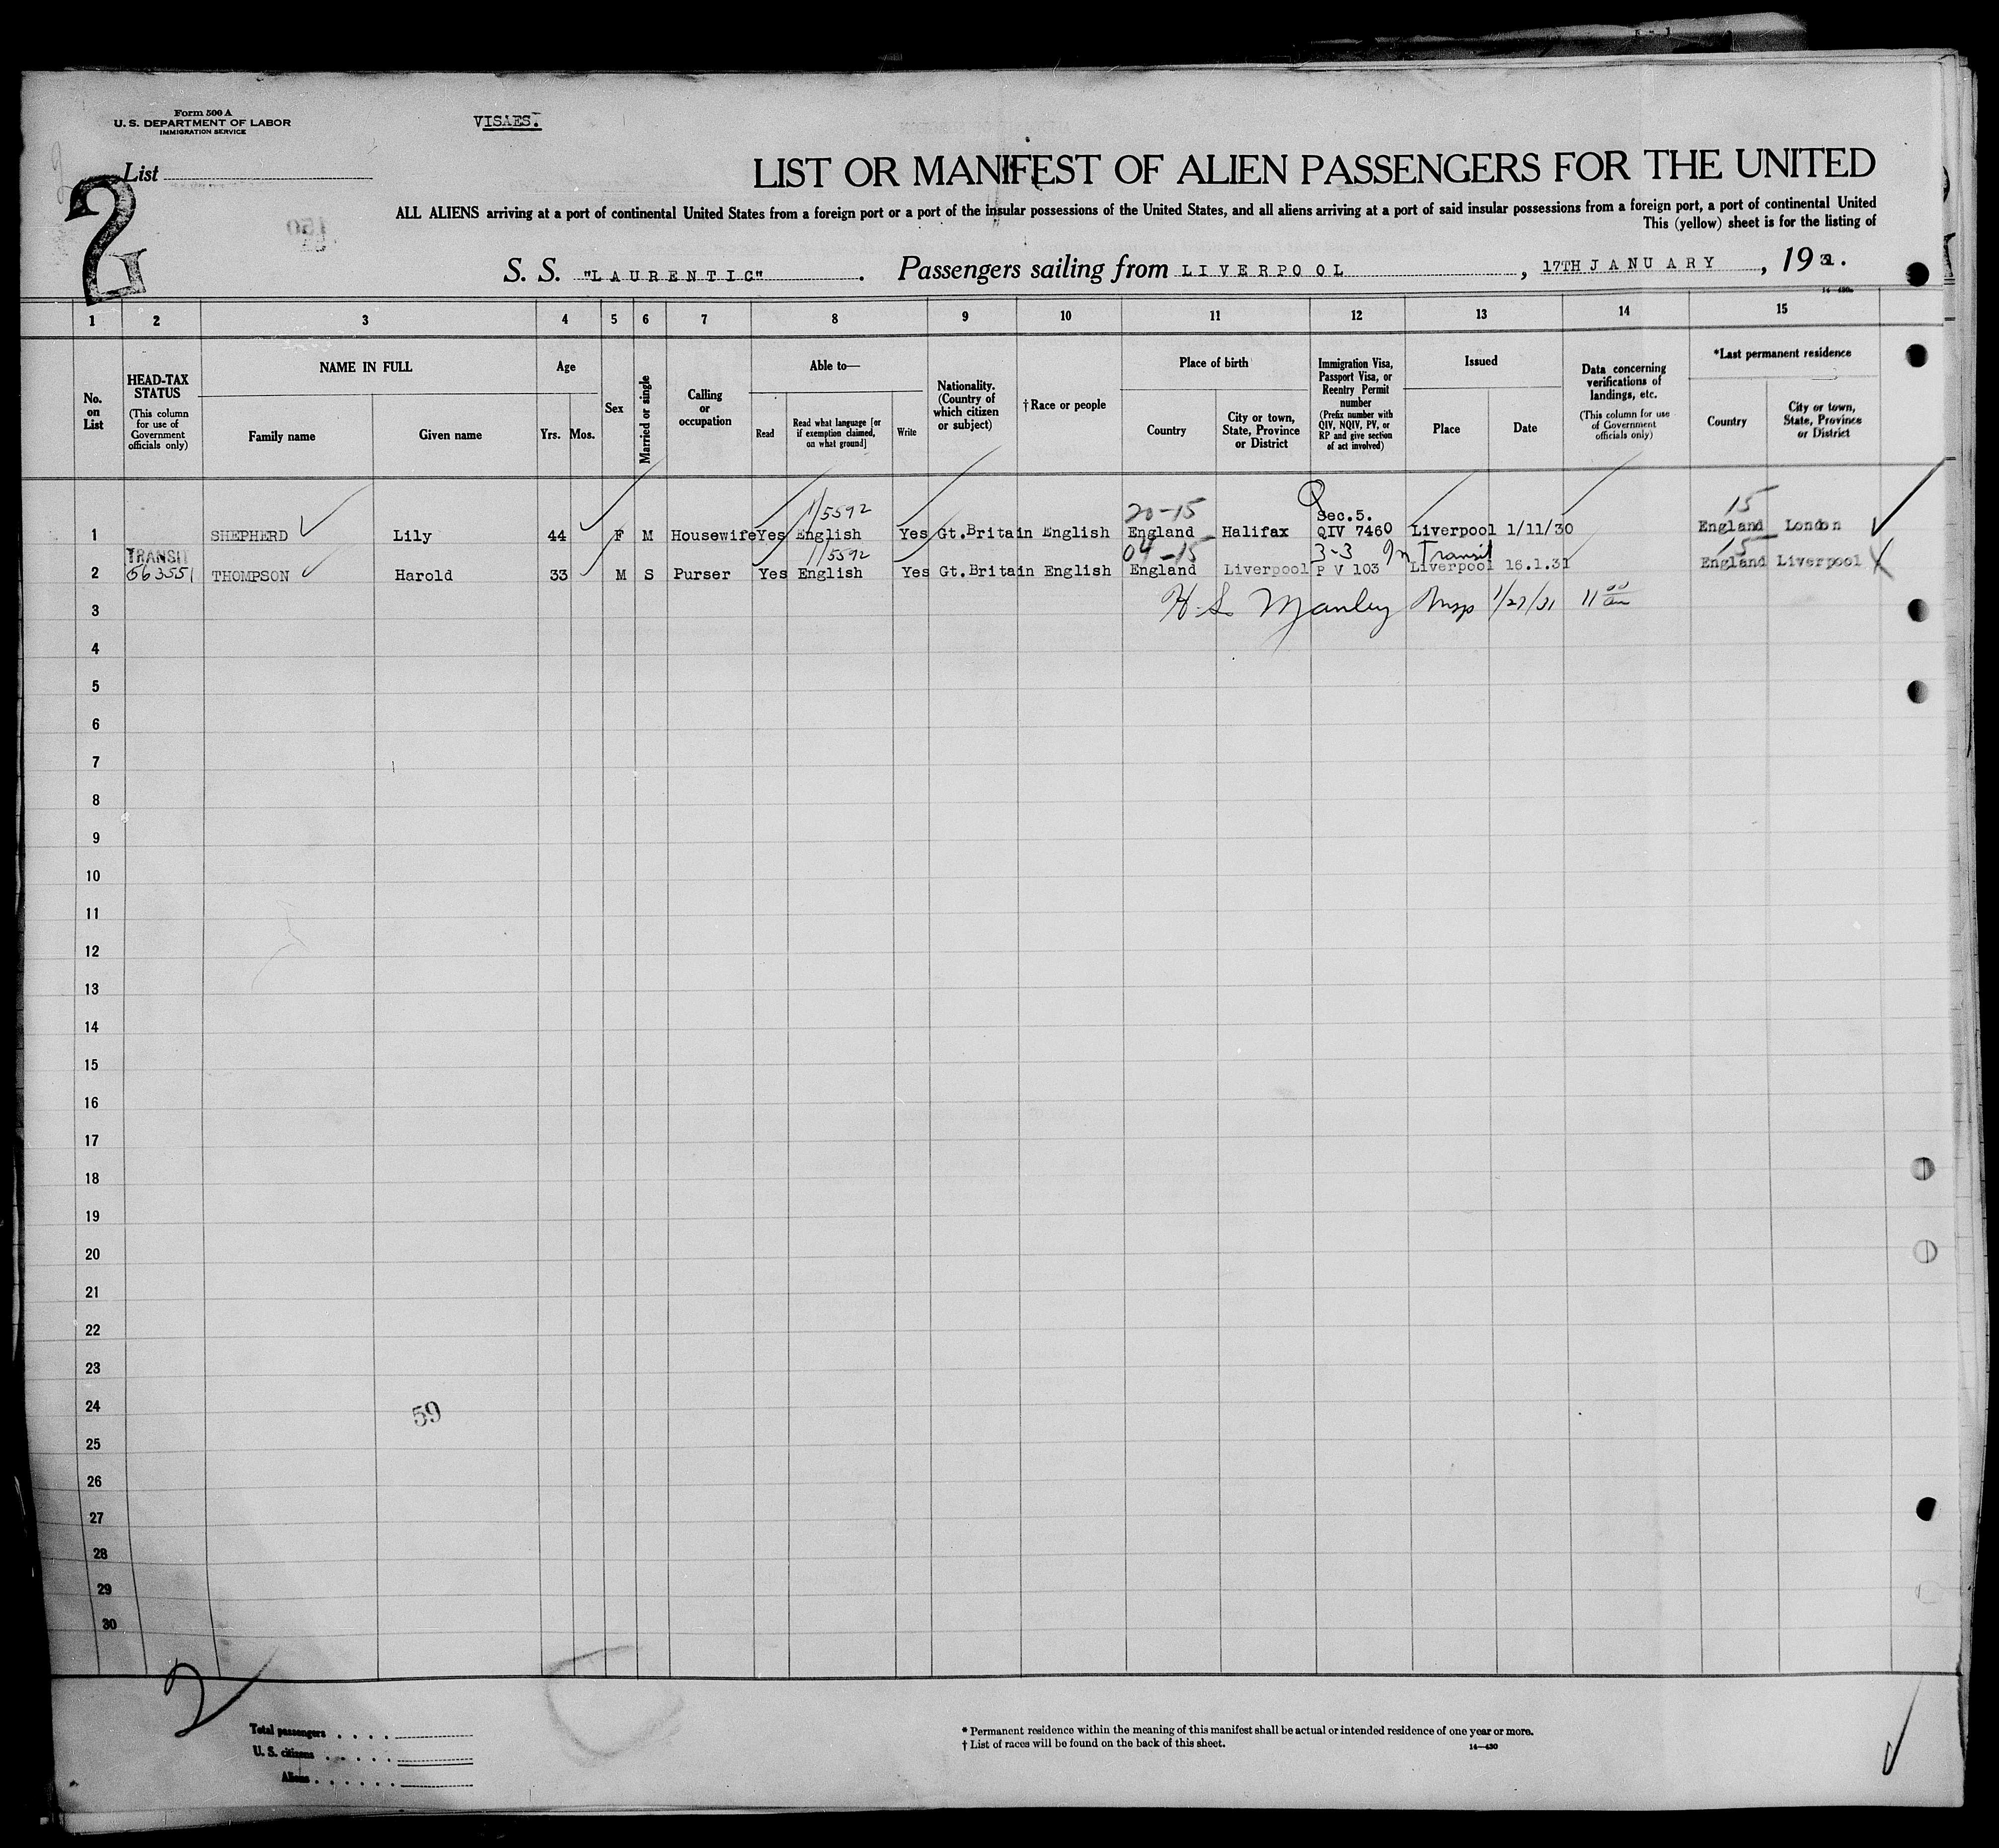 Form 500 A
U. S. DEPARTMENT OF LABOR
IMMIGRATION SERVICE
VISAES.
List
2
LIST OR MANIFEST OF ALIEN PASSENGERS FOR THE UNITED
ALL ALIENS arriving at a port of continental United States from a foreign port or a port of the insular possessions of the United States, and all aliens arriving at a port of said insular possessions from a foreign port, a port of continental United
This (yellow) sheet is for the listing of
150
S. S. "LAURENTIC" . Passengers sailing from LIVERPOOL , 17TH JANUARY , 1931.
14—430a
1 2 3 4 5 6 7 8 9 10 11 12 13 14 15
No. on List
HEAD-TAX STATUS (This column for use of Government officials only)
NAME IN FULL
Family name Given name
Age
Yrs. Mos.
Sex
Married or single
Calling or occupation
Able to—
Read
Read what language [or if exemption claimed, on what ground]
Write
Nationality. (Country of which citizen or subject)
† Race or people
Place of birth
Country
City or town, State, Province or District
Immigration Visa, Passport Visa, or Reentry Permit number (Prefix number with QIV, NQIV, PV, or RP and give section of act involved)
Issued
Place Date
Data concerning verifications of landings, etc. (This column for use of Government officials only)
*Last permanent residence
Country
City or town, State, Province or District
1/5592 20-15 Sec.5. 15
1 SHEPHERD Lily 44 F M Housewife Yes English Yes Gt.Britain English England Halifax QIV 7460 Liverpool 1/11/30 England London
TRANSIT 1/5592 04-15 3-3 In Transit 15
2 563551 THOMPSON Harold 33 M S Purser Yes English Yes Gt.Britain English England Liverpool P V 103 Liverpool 16.1.31 England Liverpool
3 H. S. Manley Insp 1/27/31 11 00 am
4
5
6
7
8
9
10
11
12
13
14
15
16
17
18
19
20
21
22
23
24 59
25
26
27
28
29
30
2
Total passengers . . . .
U. S. citizens . . . . .
Aliens . . . . . .
* Permanent residence within the meaning of this manifest shall be actual or intended residence of one year or more.
† List of races will be found on the back of this sheet.
14—430